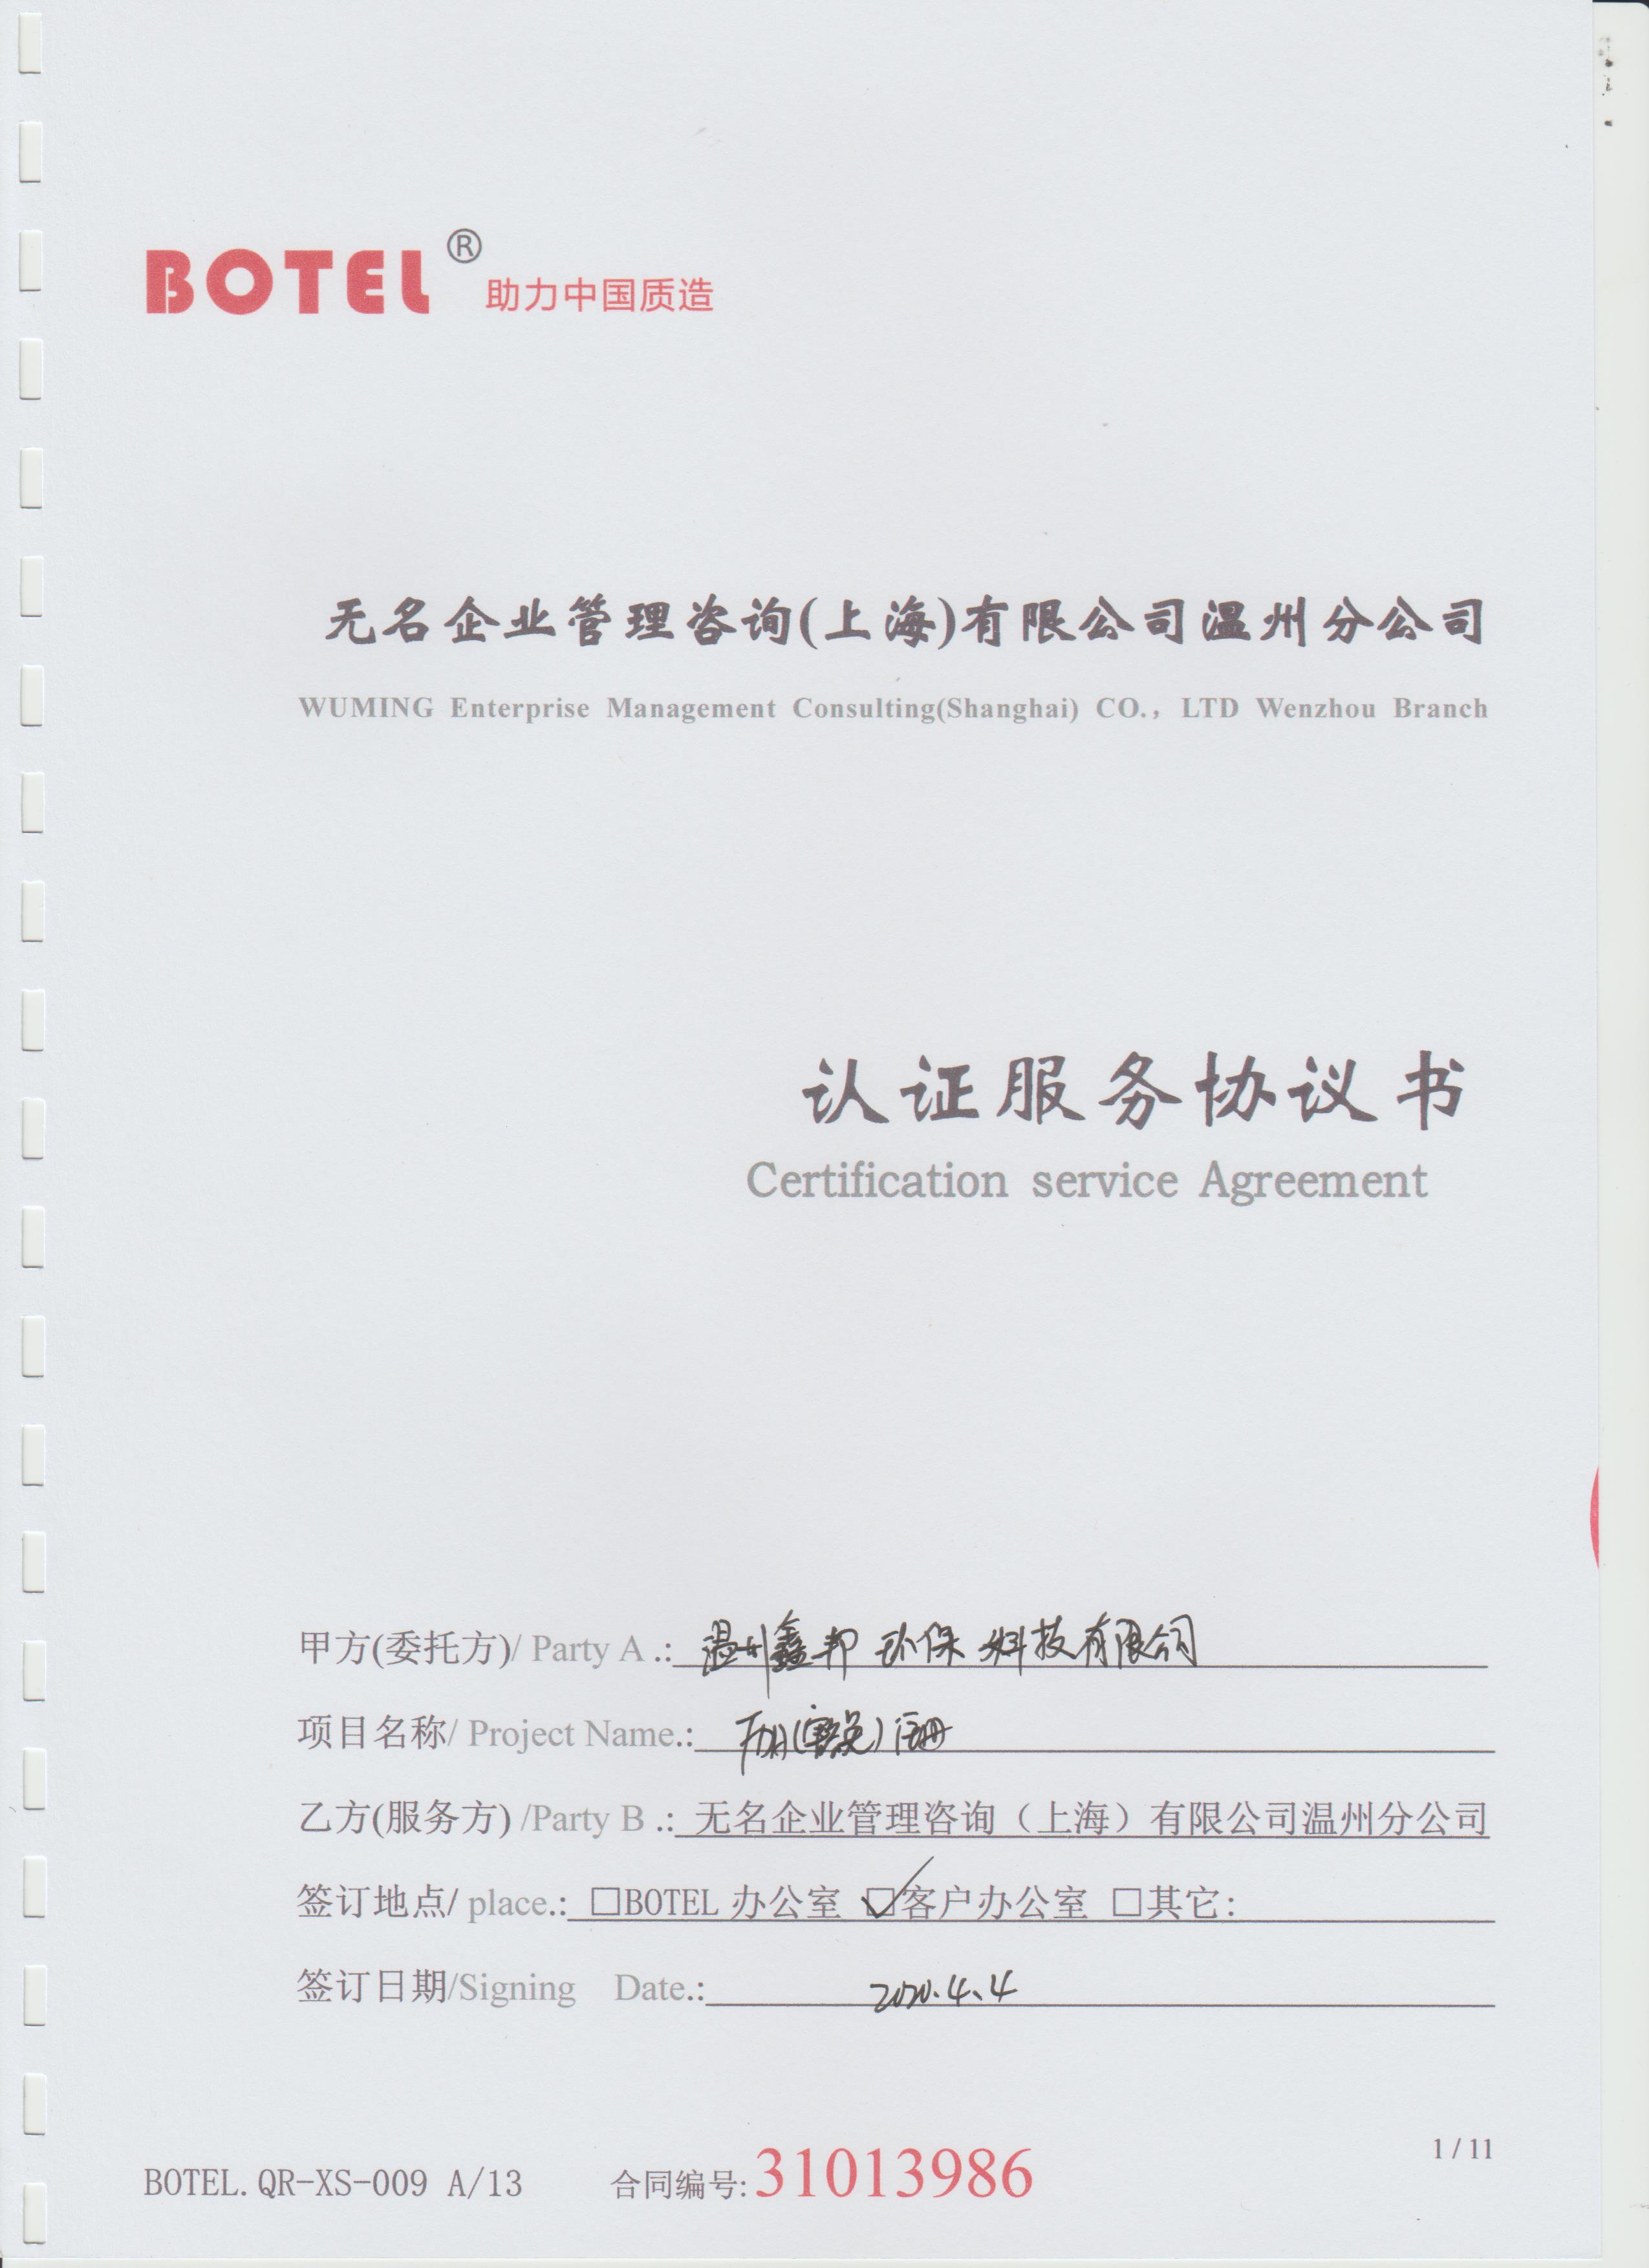 BOTEL®助力中国质造
无名企业管理咨询(上海)有限公司温州分公司
WUMING Enterprise Management Consulting(Shanghai) CO., LTD Wenzhou Branch
认证服务协议书
Certification service Agreement
甲方(委托方)/ Party A .: 温州鑫邦环保科技有限公司
项目名称/ Project Name.: FDA(豁免)注册
乙方(服务方) /Party B .: 无名企业管理咨询（上海）有限公司温州分公司
签订地点/ place.: □BOTEL 办公室 ☑客户办公室 □其它:
签订日期/Signing Date.: 2020.4.4
1 / 11
BOTEL.QR-XS-009 A/13 合同编号: 31013986